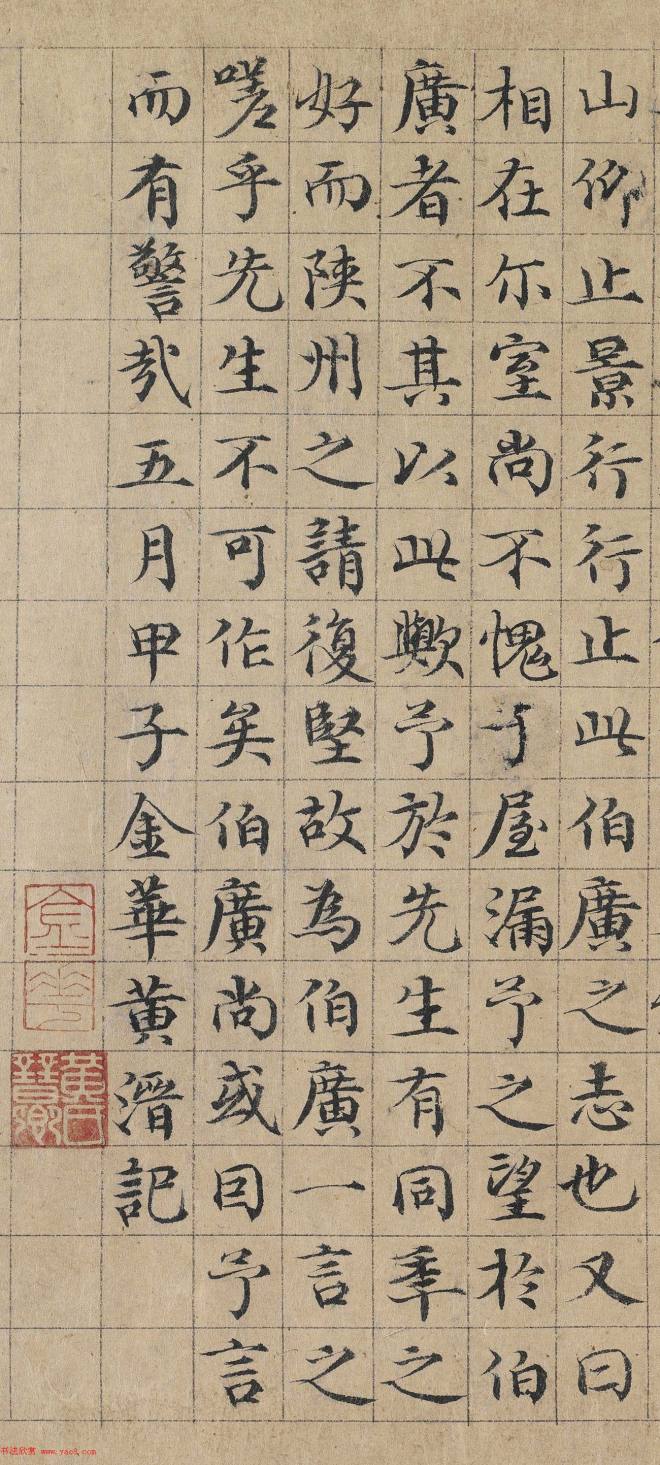 山仰止景行行止此伯廣之志也又曰
相在尔室尚不愧于屋漏予之望於伯
廣者不其以此歟予於先生有同季之
好而陝州之請復堅故為伯廣一言之
嗟乎先生不可作矣伯廣尚或因予言
而有警哉五月甲子金華黄溍記
金華
黄氏晉卿
书法欣赏 www.yac8.com